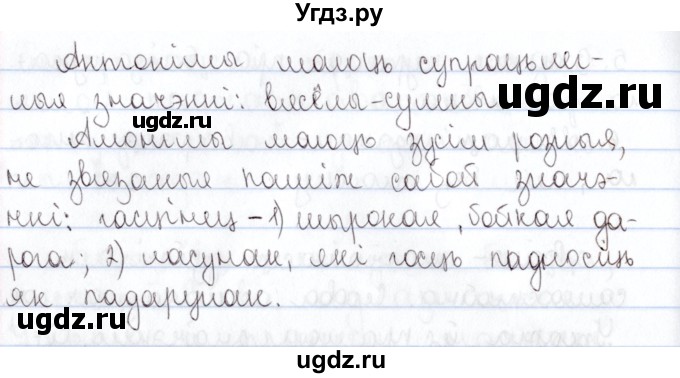 Угдз.ру
Антонімы маюць супрацьлег-
лыя значэнні: вясёлы-сумны
Амонімы маюць зусім розныя,
не звязаныя паміж сабой значэ-
нні: гасцінец - 1) шырокая, бойкая да-
рога; 2) ласунак, які госць падносіць
як падарунак.
ugdz.ru
ugdz.ru
ugdz.ru
ugdz.ru